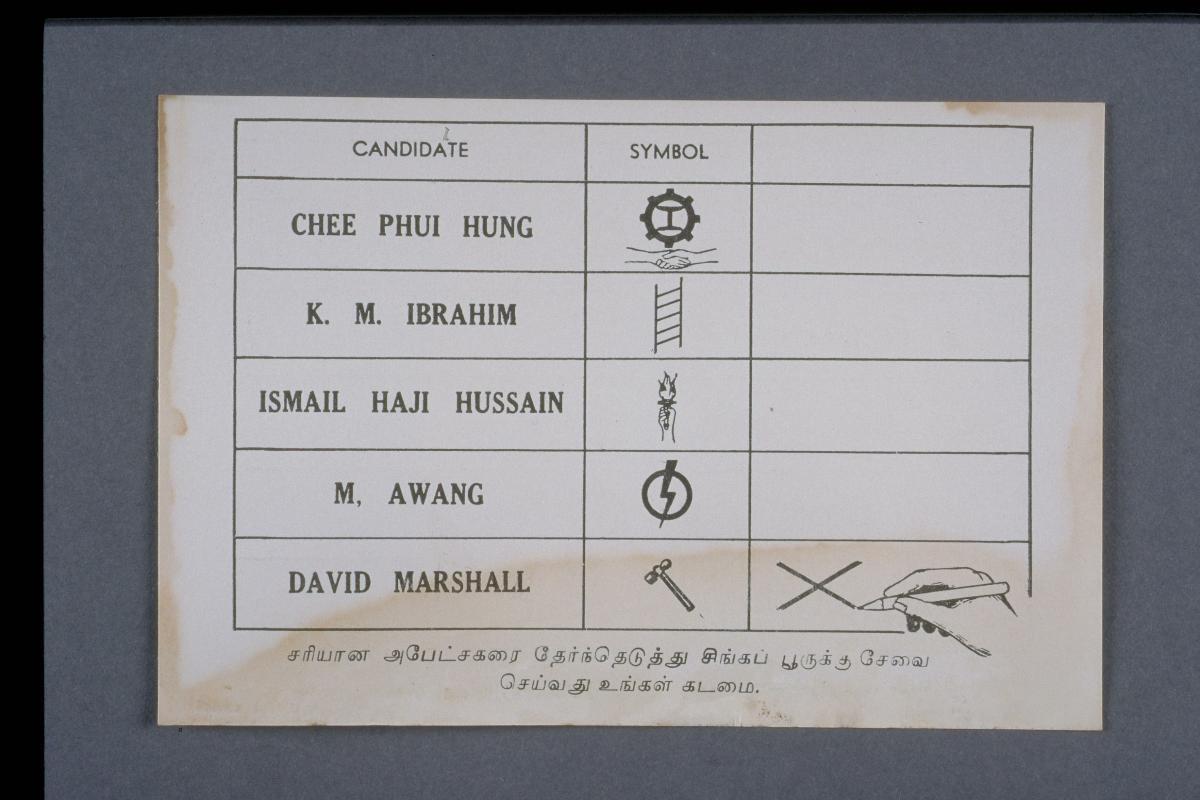 CANDIDATE SYMBOL
CHEE PHUI HUNG
K. M. IBRAHIM
ISMAIL HAJI HUSSAIN
M, AWANG
DAVID MARSHALL
சரியான அபேட்சகரை தேர்ந்தெடுத்து சிங்கப் பூருக்கு சேவை
செய்வது உங்கள் கடமை.